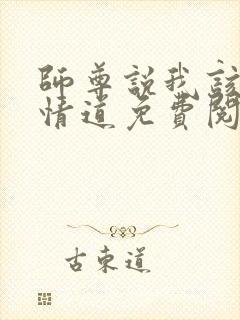 師尊說我該
情道免費閱
古東道